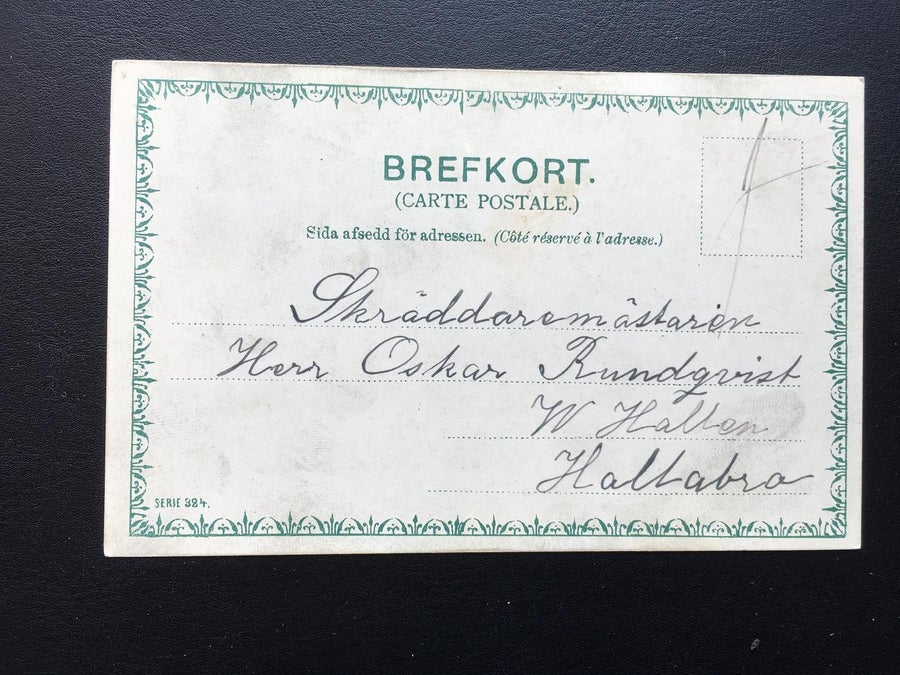 BREFKORT.
(CARTE POSTALE.)
Sida afsedd för adressen. (Côté réservé à l'adresse.)
Skräddaremästaren
Herr Oskar Rundqvist
W Hallen
Hallabro
SERIE 324.